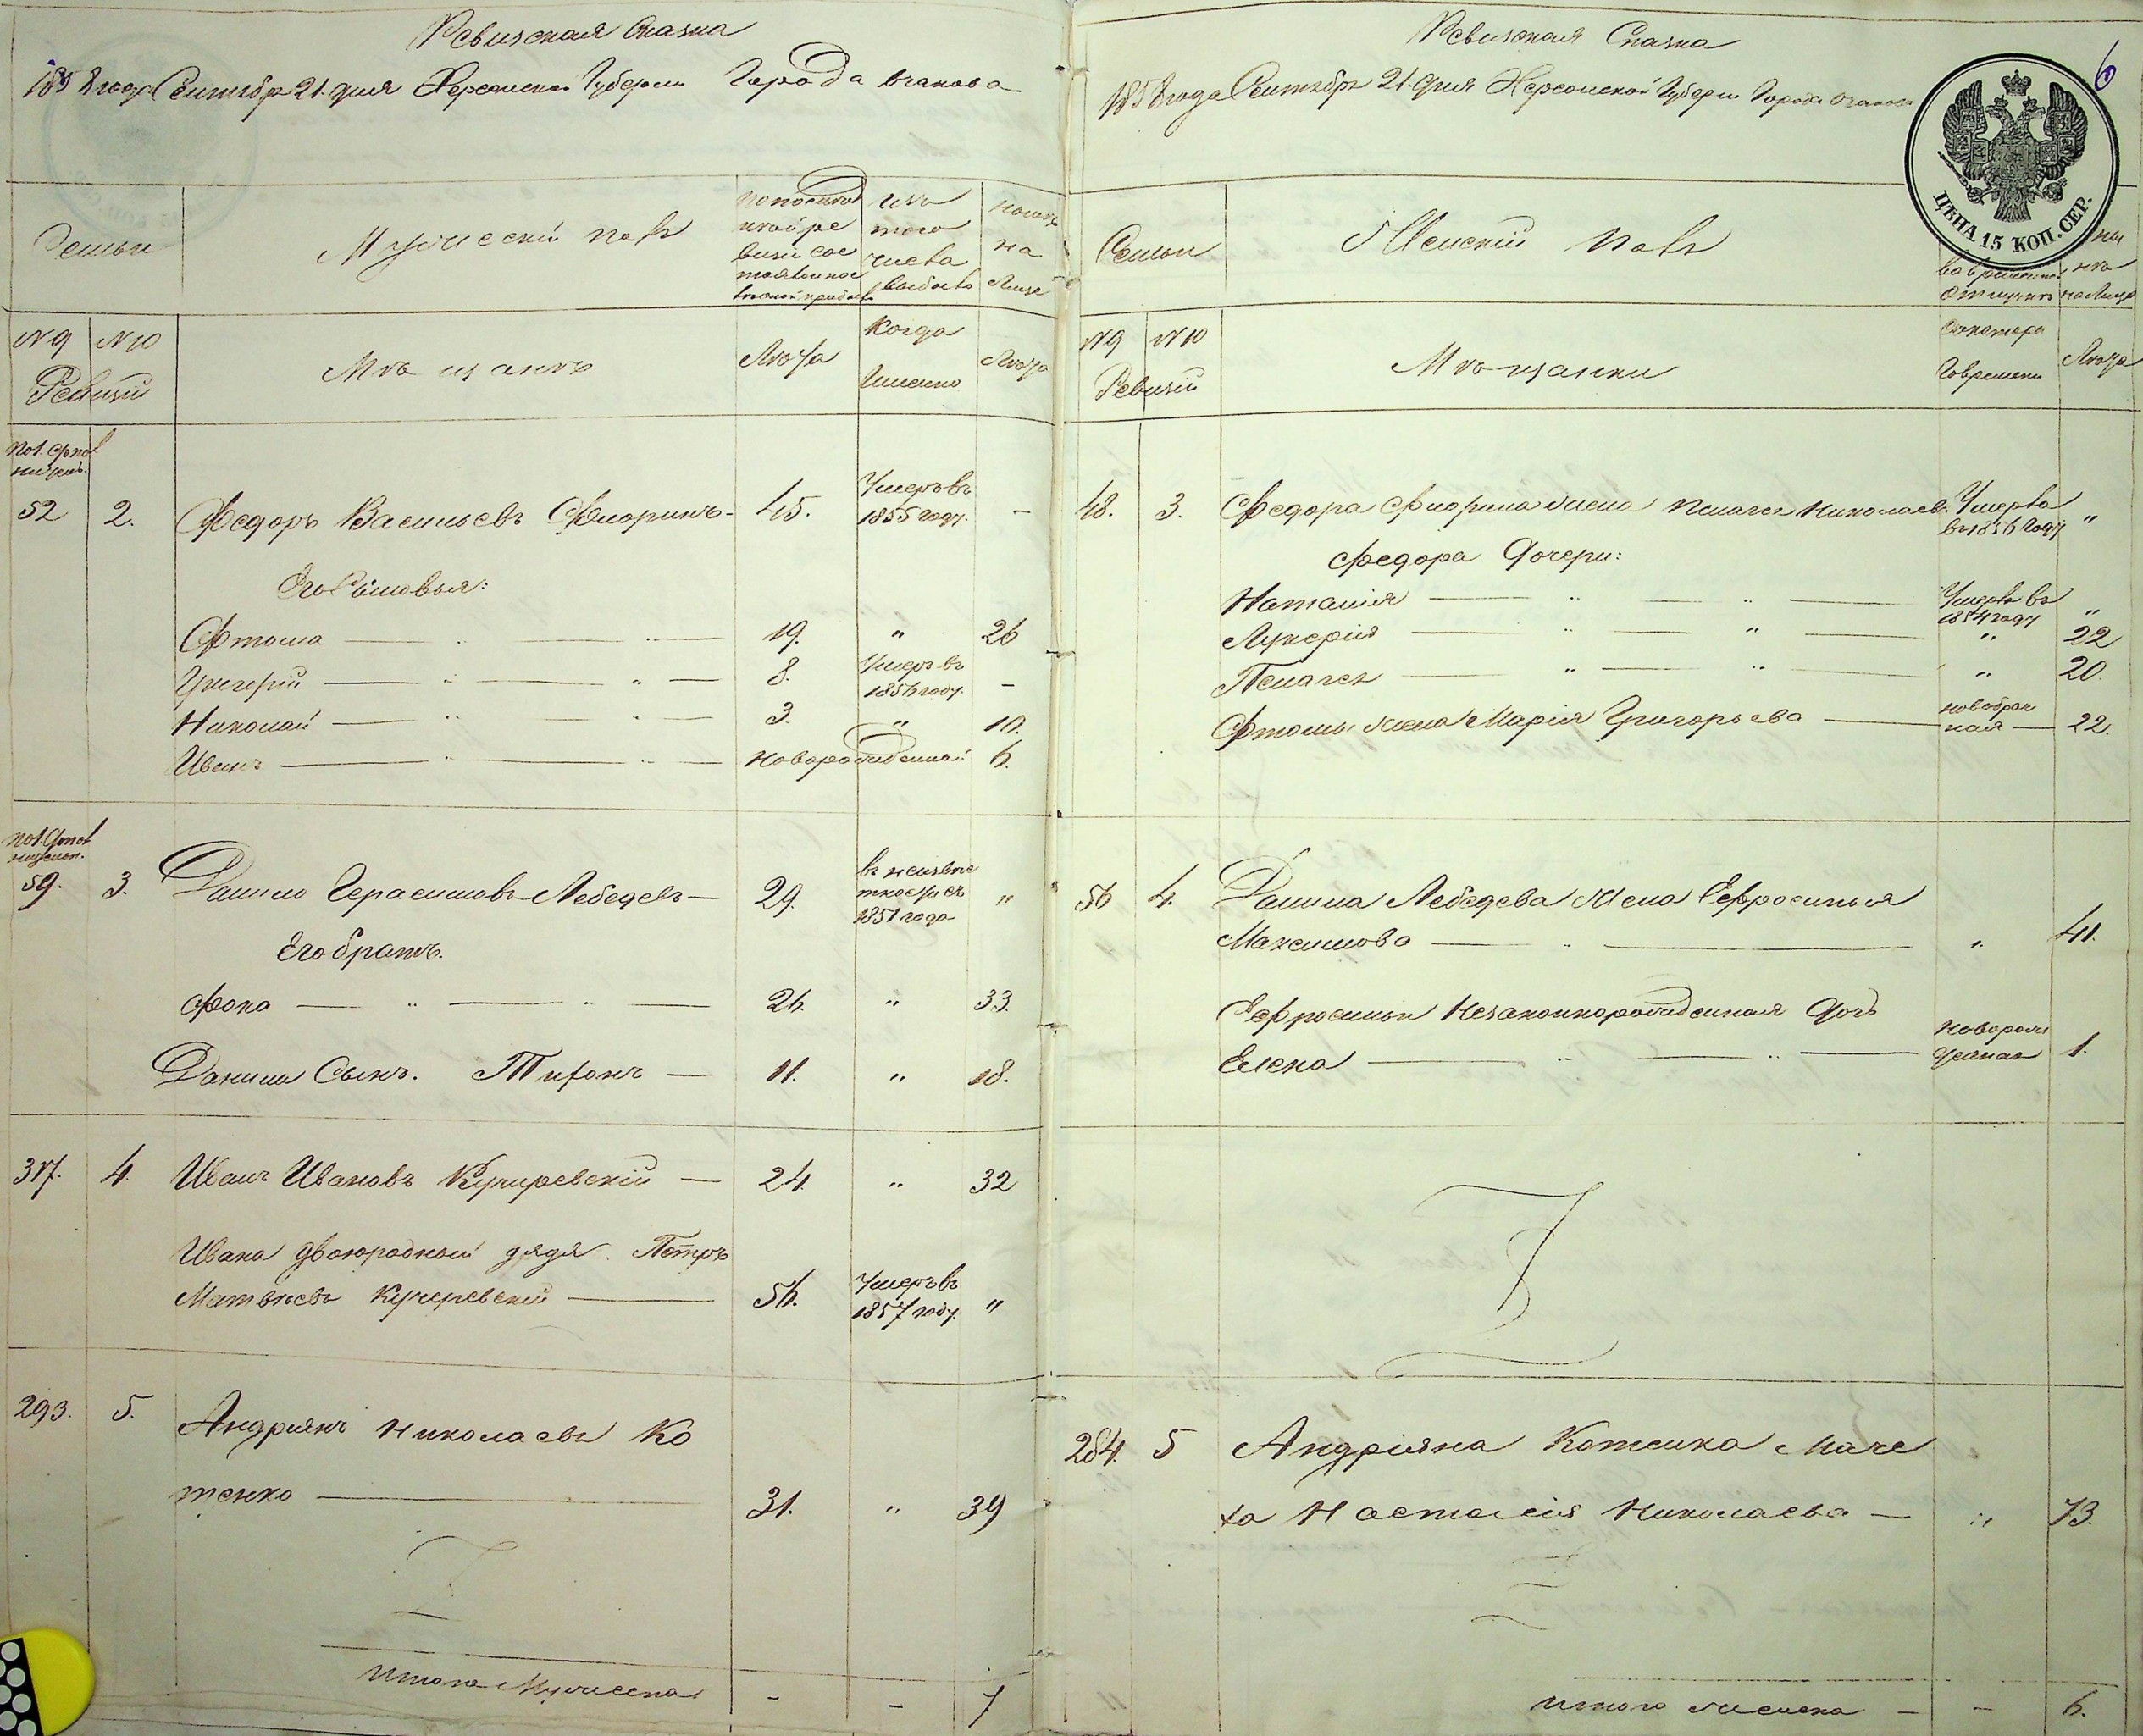 Ревизская Сказка
1858 года Сентября 21. дня Херсонской Губернии Города Очакова
Семьи
Мужеский полъ
По последней ревизіи состояло и после оной прибыло
Изъ того числа выбыло
Ныне на Лице
№ 9 № 10
Ревизіи
Мѣщанъ
Лѣта
Когда Именно
Лѣта
52 2. Федоръ Васильевъ Флоринъ - 45. Умеръ въ 1855 году. -
Его Сыновья:
Фтома — " — " — 19. " 26
Григорій — " — " — 8. Умеръ въ 1856 году. -
Николай — " — " — 3. " 10.
Иванъ — " — " — новорожденный 6.
59. 3. Данило Герасимовъ Лебедевъ — 29. въ неизвестности съ 1851 года "
Его братъ.
Фока — " — " — 26. " 33.
Данила Сынъ. Тихонъ — 11. " 18.
317. 4. Иванъ Ивановъ Кучеревскій — 24. " 32
Ивана двоюродный дядя. Петръ
Матвѣевъ Кучеревскій — 56. Умеръ въ 1857 году. "
293. 5. Андріянъ Николаевъ Ко
тенко — 31. " 39
Итого Мужеска - - 7
Ревизская Сказка
6
1858 года Сентября 21. дня Херсонской Губерніи Города Очакова
ЦѢНА 15 КОП. СЕР.
Семьи
Женскій полъ
во временной отлучкѣ
на Лице
№ 9 № 10
Ревизіи
Мѣщанки
Съ котораго времени
Лѣта
48. 3. Федора Флорина жена Пелагея Николаева Умерла въ 1856 году "
Федора Дочери:
Наталія — " — " — Умерла въ 1854 году "
Лукерія — " — " — " 22
Пелагея — " — " — " 20.
Фтомы жена Марія Григорьева — новобрачная — 22.
56 4. Данила Лебедева Жена Ефросинья
Максимова — " — " 41.
Ефросиньи Незаконнорожденная дочь
Елена — " — " — новорожденная 1.
284. 5 Андріяна Котенка Маче
ха Настасія Николаева — " 73.
Итого женска - - 6.